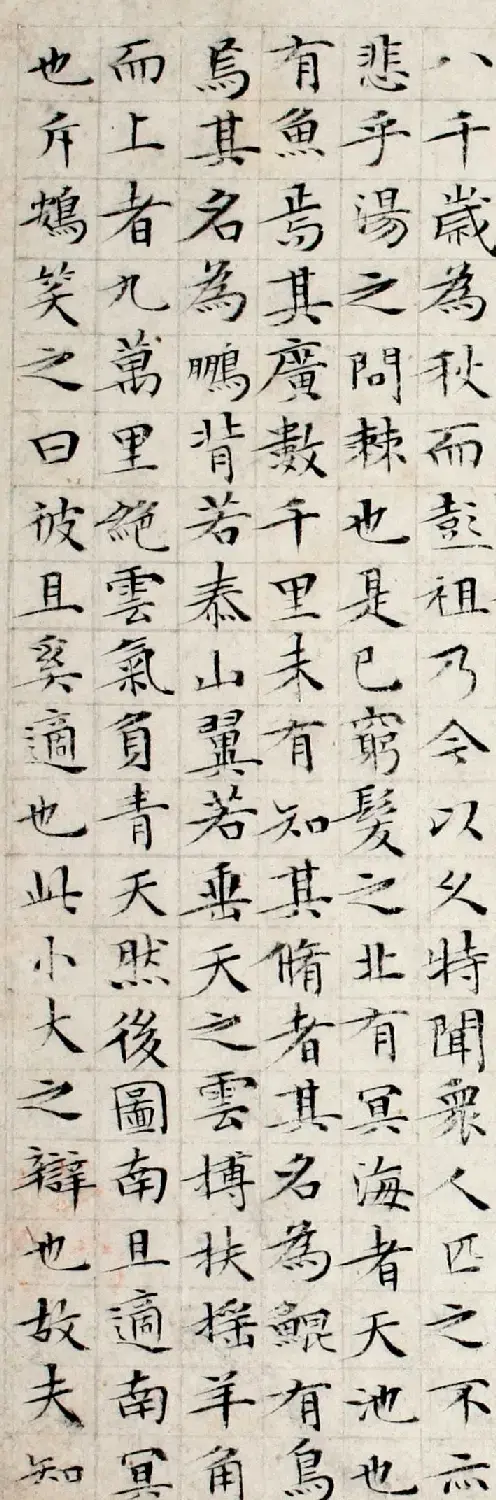 八千歲為秋而彭祖乃今以久特聞衆人匹之不亦
悲乎湯之問棘也是已窮髮之北有冥海者天池也
有魚焉其廣數千里未有知其脩者其名為鯤有鳥
焉其名為鵬背若泰山翼若垂天之雲摶扶搖羊角
而上者九萬里絶雲氣負青天然後圖南且適南冥
也斥鴳笑之曰彼且奚適也此小大之辯也故夫知